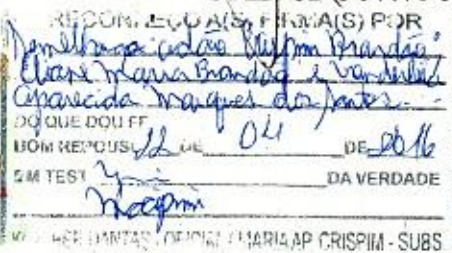 RECONHEÇO A(S) FIRMA(S) POR
Semelhança de João Crispim Brandão,
Eliane Maria Brandão e Vanderléia
Aparecida Marques dos Santos.-.-
DO QUE DOU FÉ
BOM REPOUSO, 22 DE 04 DE 2016
EM TEST DA VERDADE
DANTAS - OFICIAL / MARIA AP CRISPIM - SUBS